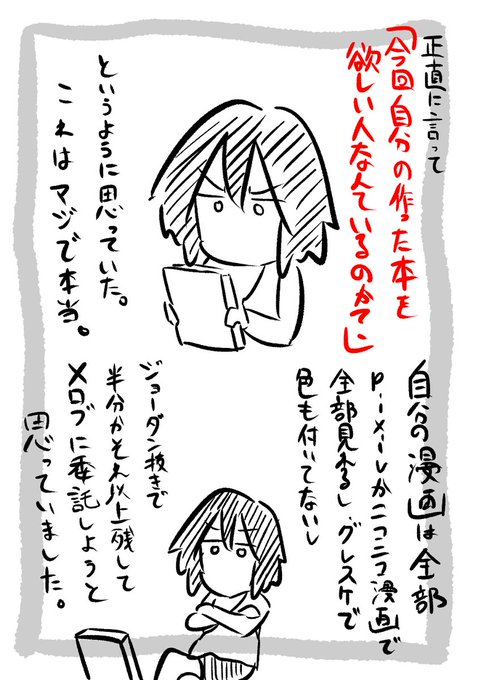 正直に言って
「今回自分の作った本を
欲しい人なんているのかて」
というように思っていた。
これはマジで本当。
自分の漫画は全部
pixivかニコニコ漫画で
全部見れるし、グレスケで
色も付いてないし
ジョーダン抜きで
半分かそれ以上残して
メロブに委託しようと
思っていました。